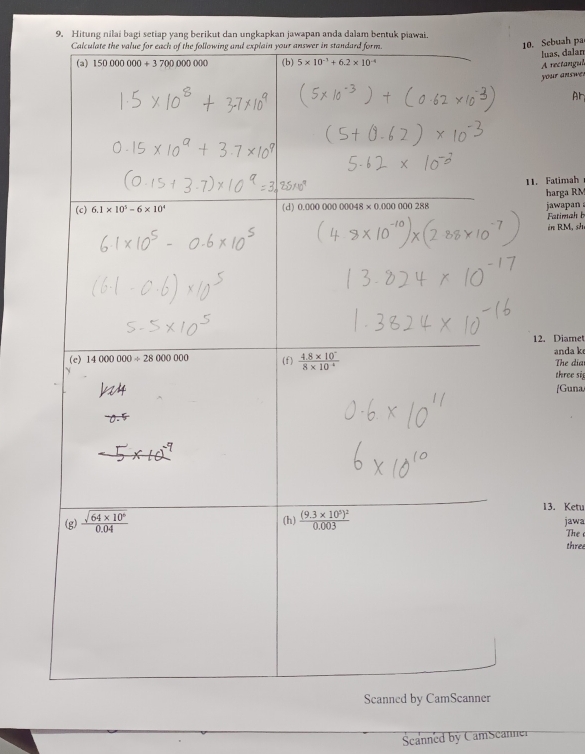 9. Hitung nilai bagi setiap yang berikut dan ungkapkan jawapan anda dalam bentuk piawai.
Calculate the value for each of the following and explain your answer in standard form.
(a) 150 000 000 + 3 700 000 000
1.5 × 10⁸ + 3.7 × 10⁹
0.15 × 10⁹ + 3.7 × 10⁹
(0.15 + 3.7) × 10⁹ = 3.85×10⁹
(b) 5 × 10⁻³ + 6.2 × 10⁻⁴
(5 × 10⁻³) + (0.62 × 10⁻³)
(5 + 0.62) × 10⁻³
5.62 × 10⁻³
(c) 6.1 × 10⁵ – 6 × 10⁴
6.1 × 10⁵ - 0.6 × 10⁵
(6.1 - 0.6) × 10⁵
5.5 × 10⁵
(d) 0.000 000 00048 × 0.000 000 288
(4.8 × 10⁻¹⁰) × (2.88 × 10⁻⁷)
13.824 × 10⁻¹⁷
1.3824 × 10⁻¹⁶
(e) 14 000 000 ÷ 28 000 000
0.5
5 × 10⁻⁹
(f) 4.8 × 10
8 × 10⁻⁴
0.6 × 10¹¹
6 × 10¹⁰
(g) √64 × 10⁶
0.04
(h) (9.3 × 10⁵)²
0.003
10. Sebuah
luas, dalam
A
your
11. Fatimah
harga RM
jawapan
Fatimah
in RM,
12.
anda
The
three
13.
The
three
Scanned by CamScanner
Scanned by CamScanner